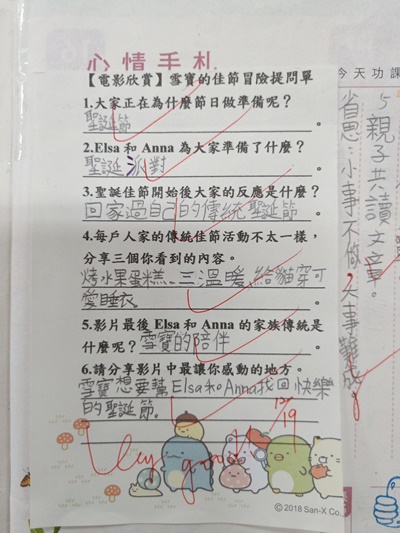 心情手札
【電影欣賞】雪寶的佳節冒險提問單
1.大家正在為什麼節日做準備呢？
聖誕節。
2.Elsa 和 Anna 為大家準備了什麼？
聖誕派對。
3.聖誕佳節開始後大家的反應是什麼？
回家過自己的傳統聖誕節。
4.每戶人家的傳統佳節活動不太一樣，
分享三個你看到的內容。
烤水果蛋糕、三溫暖、給貓穿可
愛睡衣。
5.影片最後 Elsa 和 Anna 的家族傳統是
什麼呢？雪寶的陪伴。
6.請分享影片中最讓你感動的地方。
雪寶想要幫Elsa和Anna找回快樂
的聖誕節。
12/19
Very good
©2018 San-X Co.,
今天功課
5親子共讀文章。
省思：小事不做，大事難成。